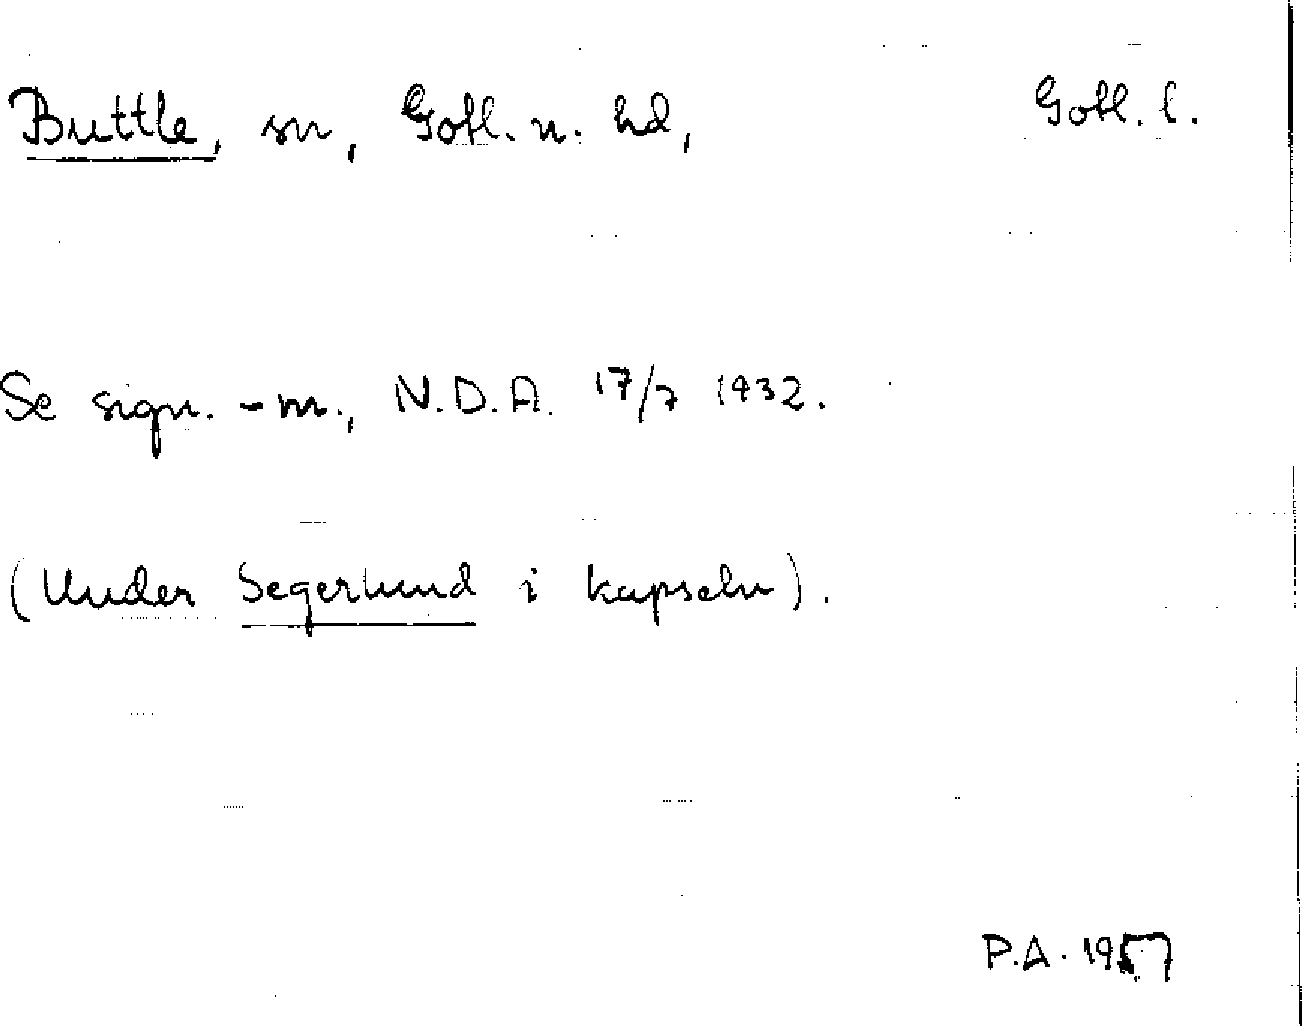 Buttle, sn, Gotl. n. hd, Gotl. l.
Se sign. -m., N.D.A. 17/7 1932.
(Under Segerlund i kapseln).
P.A. 1957